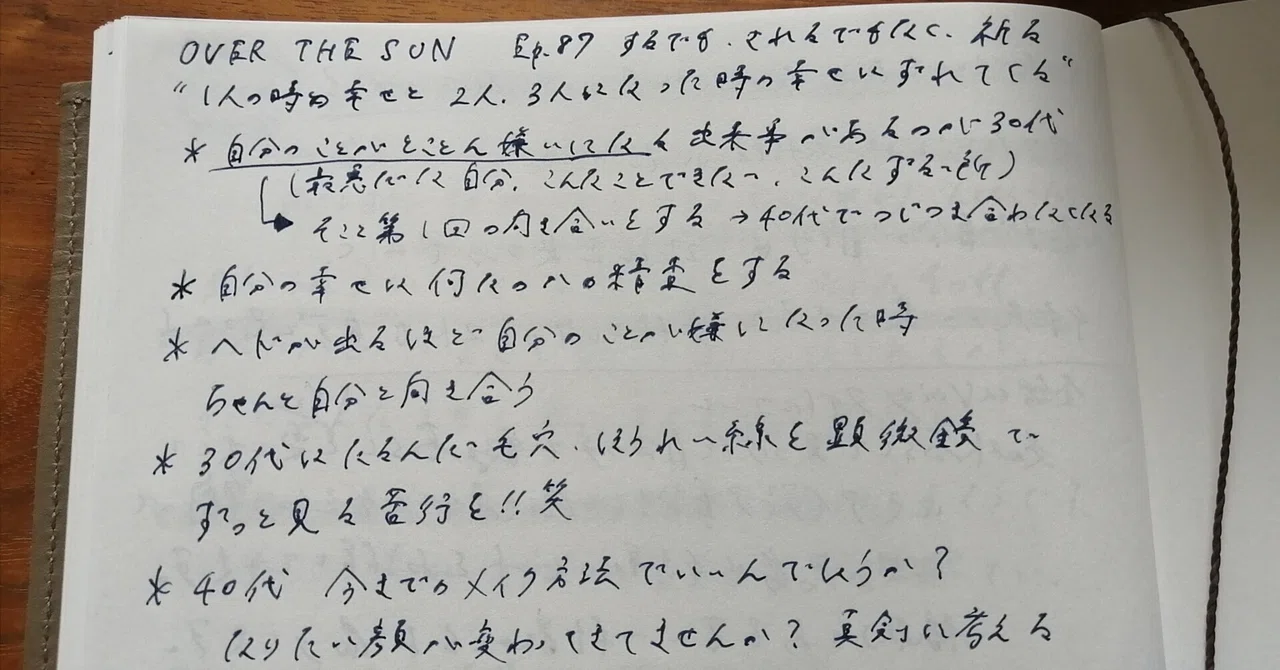 OVER THE SUN Ep.87 するでも、されるでもなく、祈る
"1人の時の幸せと 2人、3人になった時の幸せはずれてくる"
* 自分のことがとことん嫌いになる出来事があるのが30代
(最悪だな自分、こんなことできない、こんなずるい所)
そこで第1回の向き合いをする→40代でつじつま合わなくなる
* 自分の幸せは何なのかの精査をする
* ヘドが出るほど自分のことが嫌いになった時
ちゃんと自分と向き合う
* 30代はたるんだ毛穴、ほうれい線を顕微鏡で
ずっと見る苦行を!!笑
* 40代 今までのメイク方法でいいんでしょうか?
なりたい顔が変わってきてませんか? 真剣に考える